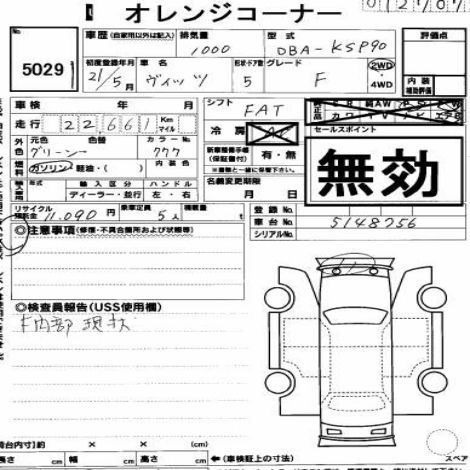 オレンジコーナー
No. 5029
車歴 (自家用以外は記入) 排気量 型式 評価点
1000 DBA-KSP90
初度登録年月 車名 形状・ドア数 グレード
21/5月 ヴィッツ 5 F 2WD・4WD
内装補助評価
車検 年 月 シフト FAT
走行 22,661 Km マイル 冷房 AC
セールスポイント
元色 色替 カラーNo. 新車整備手帳(保証書付) 有・無
外色 グリーン 777 無効
燃料 ガソリン・軽油・( ) 内装色 ※書類と一緒に保管下さい。
年式 輸入区分 ハンドル 名義変更期限
輸入車 ディーラー・並行 左・右 月 日
リサイクル預託金 11,090円 乗車定員 5人 積載量 登録No.
◎注意事項(修復・不具合箇所および状態等) 車台No. 5148756
シリアルNo.
◎検査員報告(USS使用欄)
下内部現状
【荷台内寸】約 × × (約)
長さ cm 幅 cm 高さ cm ←(車検証上の寸法) スペア